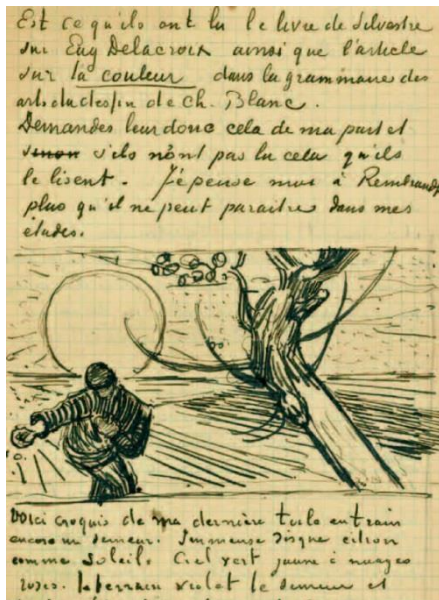 Est ce qu'ils ont lu le livre de Silvestre
sur Eug Delacroix ainsi que l'article
sur la couleur dans la grammaire des
arts du dessin de Ch. Blanc.
Demandes leur donc cela de ma part et
sinon s'ils n'ont pas lu cela qu'ils
le lisent. J'épense moi à Rembrandt
plus qu'il ne peut paraitre dans mes
études.
Voici croquis de ma dernière toile en train
encore un semeur. Immense disque citron
comme soleil. Ciel vert jaune à nuages
roses. le terrain violet le semeur et